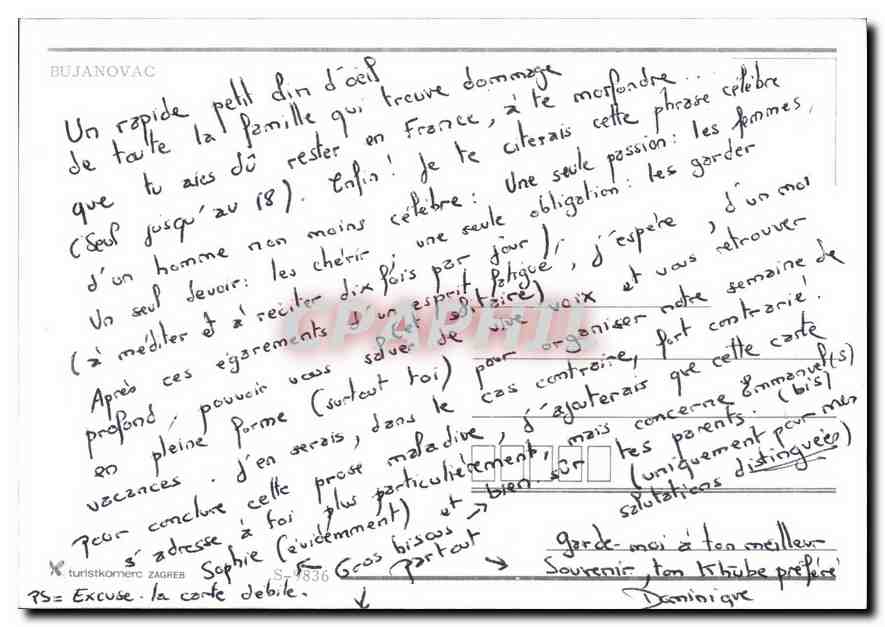 BUJANOVAC
Un rapide petit clin d'oeil
de toute la famille qui trouve dommage
que tu aies dû rester en France, à te morfondre...
(Seul jusqu'au 18). Enfin! Je te citerais cette phrase célèbre
d'un homme non moins célèbre: Une seule passion: les femmes,
Un seul devoir: les chérir, une seule obligation: les garder
(à méditer et à réciter dix fois par jour)
Après ces égarements d'un esprit fatigué, j'espère, d'un moi
(et solitaire)
profond, pouvoir vous saluer de vive voix et vous retrouver
en pleine forme (surtout toi) pour organiser notre semaine de
vacances. J'en serais, dans le cas contraire, fort contrarié!
Pour conclure cette prose maladive, j'ajouterais que cette carte
s'adresse à toi plus particulièrement, mais concerne Emmanuel(s)
Sophie (évidemment) et bien sûr tes parents. (bis)
(uniquement pour mes
salutations distinguées)
Gros bisous
partout
garde-moi à ton meilleur
Souvenir, ton Khûbe préféré
Dominique
PS= Excuse la carte débile.
turistkomerc ZAGREB
S-9836
CPAPHIL